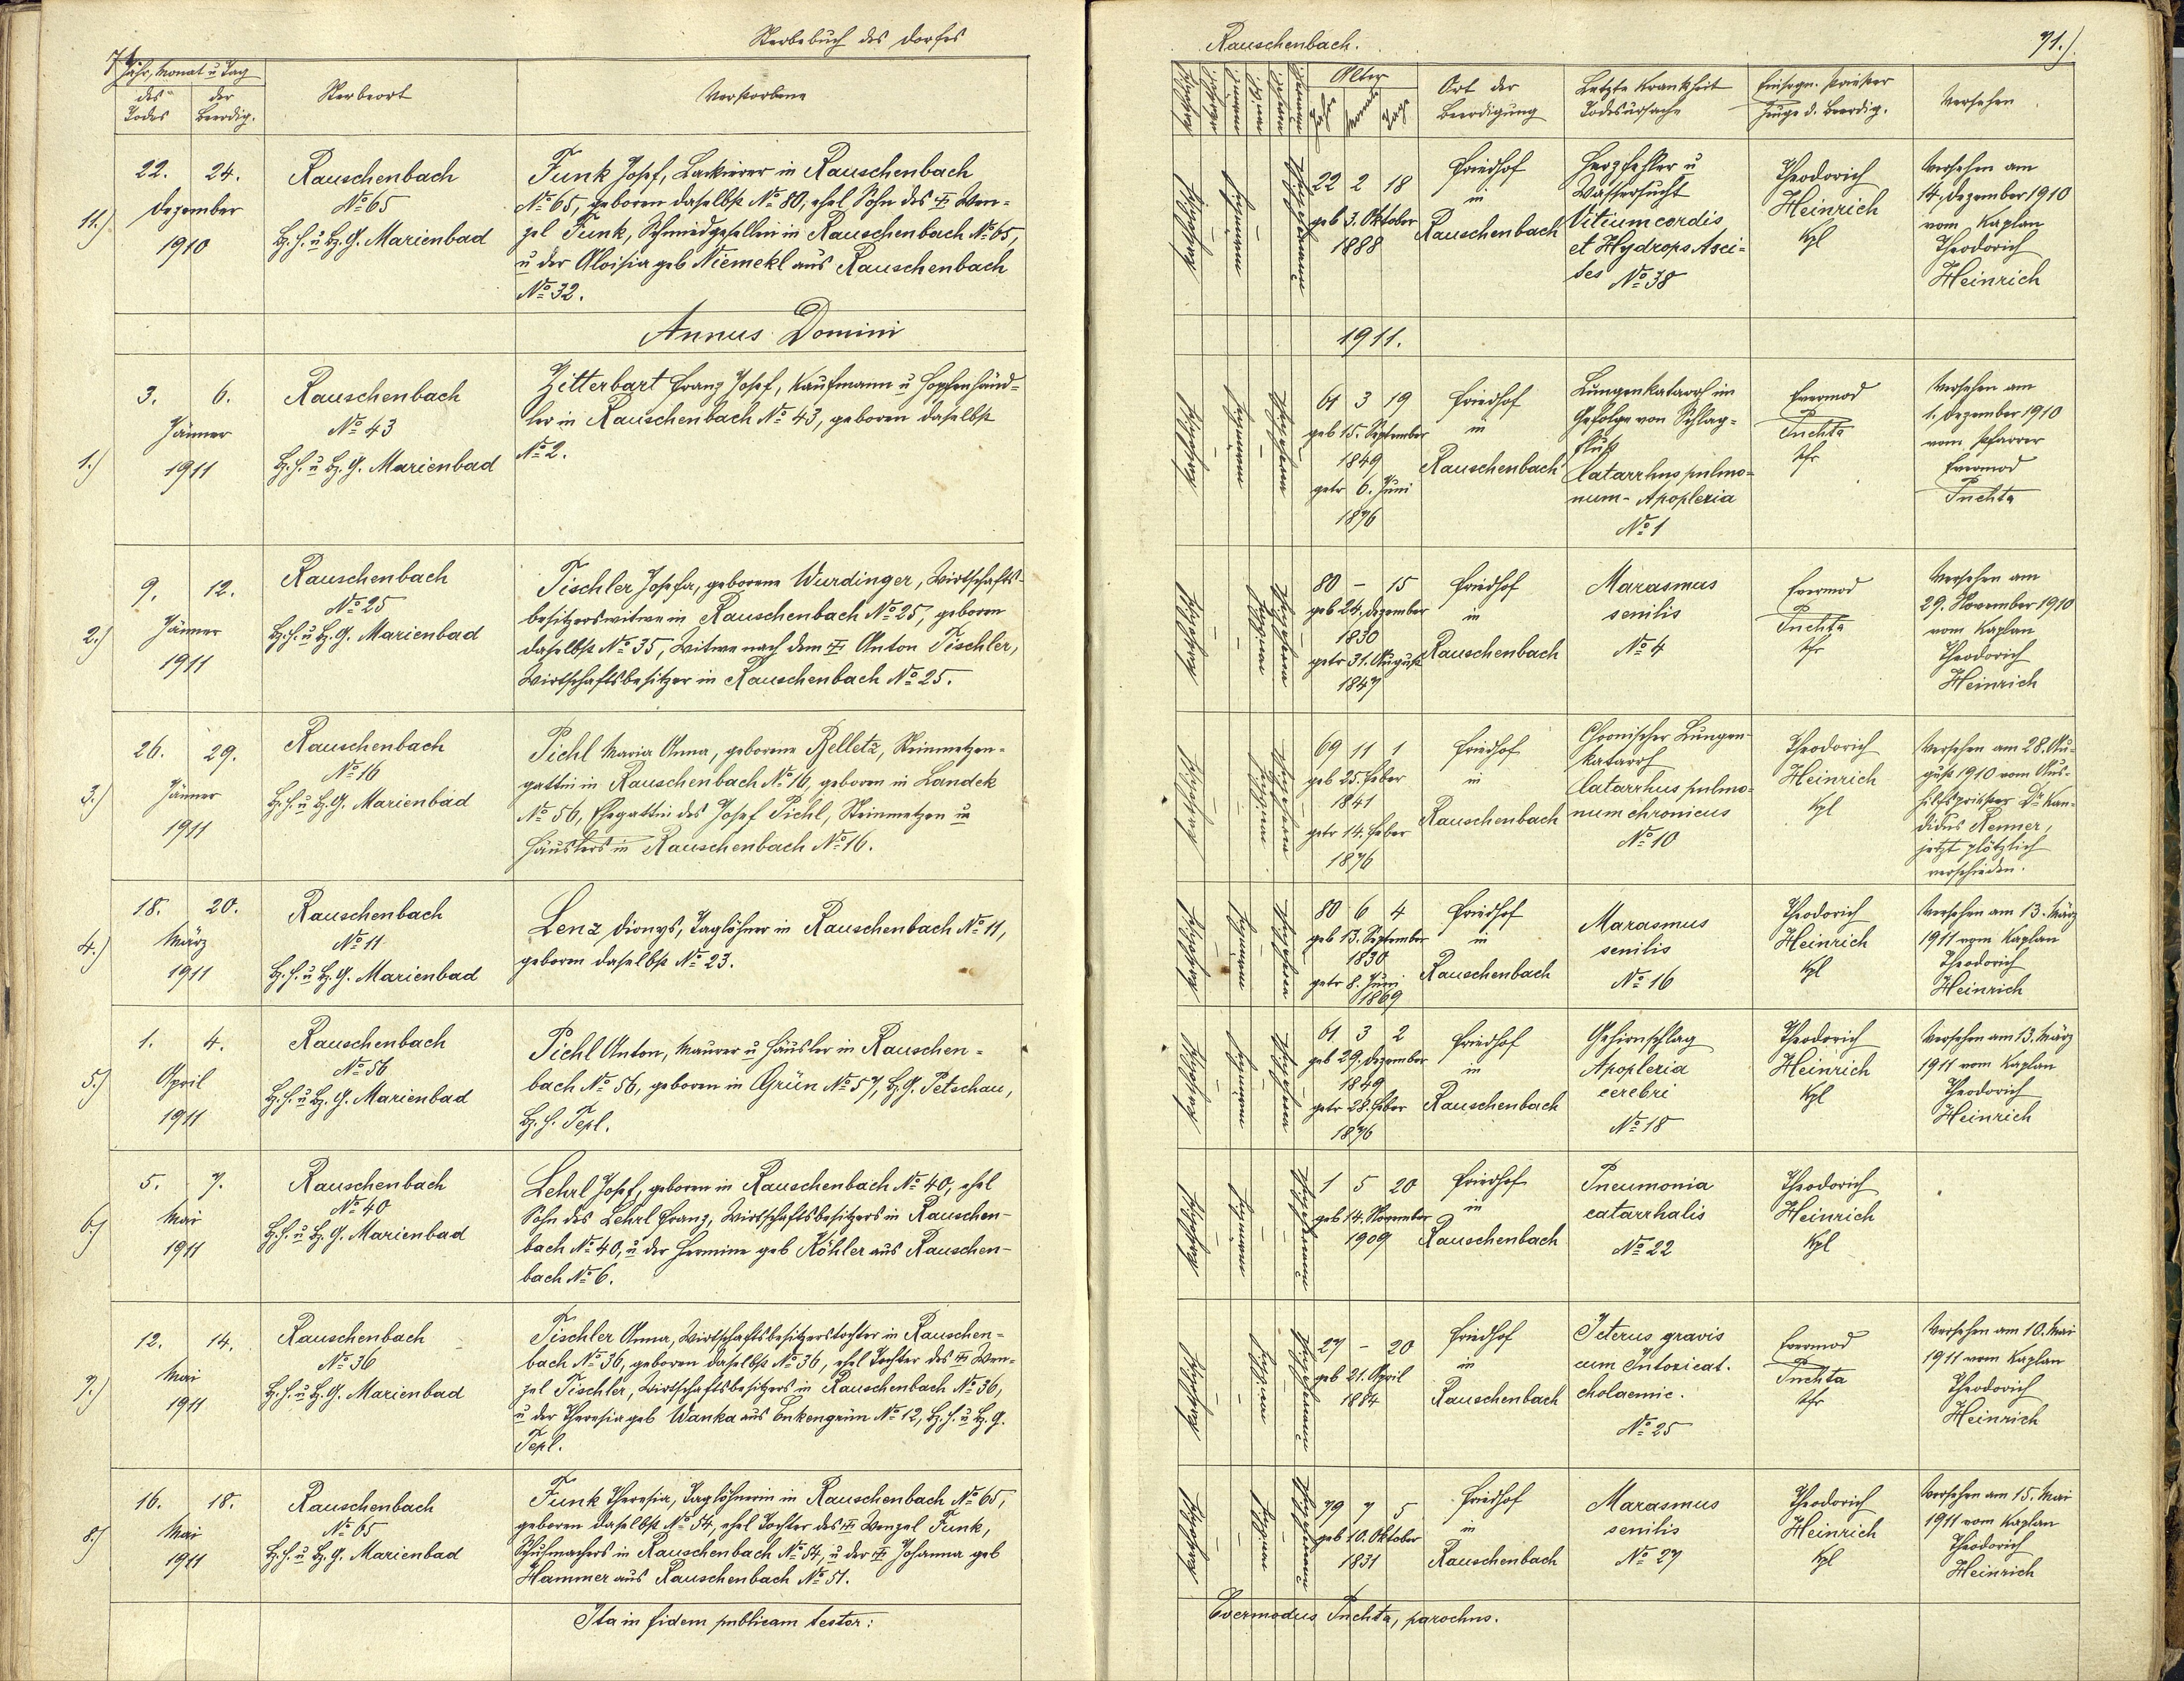 Sterbebuch des Dorfes
Jahr, Monat u Tag
des Todes
der Beerdig.
Sterbeort
Verstorbene
11.)
22. 24.
Dezember
1910
Rauschenbach
No 65
B.H. u B.G. Marienbad
Funk Josef, Lackierer in Rauschenbach
No 65, geboren daselbst No 80, ehel Sohn des † Wen-
zel Funk, Schmiedgesellen in Rauschenbach No 65,
u der Aloisia geb Niemekl aus Rauschenbach
No 32.
Annus Domini
1.)
3. 6.
Jänner
1911
Rauschenbach
No 43
B.H. u B.G. Marienbad
Zitterbart Franz Josef, Kaufmann u Hopfenhänd-
ler in Rauschenbach No 43, geboren daselbst
No 2.
2.)
9. 12.
Jänner
1911
Rauschenbach
No 25
B.H. u B.G. Marienbad
Tischler Josefa, geborene Wurdinger, Wirtschafts-
besitzerswitwe in Rauschenbach No 25, geboren
daselbst No 35, Witwe nach dem † Anton Tischler,
Wirtschaftsbesitzer in Rauschenbach No 25.
3.)
26. 29.
Jänner
1911
Rauschenbach
No 16
B.H. u B.G. Marienbad
Pichl Maria Anna, geborene Relletz, Steinmetzen-
gattin in Rauschenbach No 16, geboren in Landek
No 56, Ehegattin des Josef Pichl, Steinmetzen u
Häuslers in Rauschenbach No 16.
4.)
18. 20.
März
1911
Rauschenbach
No 11
B.H. u B.G. Marienbad
Lenz Dionys, Taglöhner in Rauschenbach No 11,
geboren daselbst No 23.
5.)
1. 4.
April
1911
Rauschenbach
No 56
B.H. u B.G. Marienbad
Pichl Anton, Maurer u Häusler in Rauschen-
bach No 56, geboren in Grün No 57, B.G. Petschau,
B.H. Tepl.
6.)
5. 7.
Mai
1911
Rauschenbach
No 40
B.H. u B.G. Marienbad
Lehrl Josef, geboren in Rauschenbach No 40, ehel
Sohn des Lehrl Franz, Wirtschaftsbesitzers in Rauschen-
bach No 40, u der Hermine geb Köhler aus Rauschen-
bach No 6.
7.)
12. 14.
Mai
1911
Rauschenbach
No 36
B.H. u B.G. Marienbad
Tischler Anna, Wirtschaftsbesitzerstochter in Rauschen-
bach No 36, geboren daselbst No 36, ehel Tochter des † Wen-
zel Tischler, Wirtschaftsbesitzers in Rauschenbach No 36,
u der Theresia geb Wanka aus Enkengrün No 12, B.H. u B.G.
Tepl.
8.)
16. 18.
Mai
1911
Rauschenbach
No 65
B.H. u B.G. Marienbad
Funk Theresia, Taglöhnerin in Rauschenbach No 65,
geboren daselbst No 54, ehel Tochter des † Wenzel Funk,
Schuhmachers in Rauschenbach No 54, u der † Johanna geb
Hammer aus Rauschenbach No 51.
Ita in fidem publicam testor:
Rauschenbach.
71.)
Alter
Jahre
Monate
Tage
Ort der
Beerdigung
Letzte Krankheit
Todesursache
Einsegn. Priester
Zeuge d. Beerdig.
Versehen
katholisch
männlich
22 2 18
geb 3. Oktober
1888
Friedhof
in
Rauschenbach
Herzfehler u
Wassersucht
Vitium cordis
et Hydrops Asci-
tes No 38
Theodorich
Heinrich
Kpl
Versehen am
14. Dezember 1910
vom Kaplan
Theodorich
Heinrich
1911.
katholisch
männlich
61 3 19
geb 15. September
1849
getr 6. Juni
1876
Friedhof
in
Rauschenbach
Lungenkatarrh im
Gefolge von Schlag-
fluß
Catarrhus pulmo-
num - Apoplexia
No 1
Evermod
Puchta
Pfr
Versehen am
1. Dezember 1910
vom Pfarrer
Evermod
Puchta
katholisch
80 - 15
geb 24. Dezember
1830
getr 31. August
1847
Friedhof
in
Rauschenbach
Marasmus
senilis
No 4
Evermod
Puchta
Pfr
Versehen am
29. November 1910
vom Kaplan
Theodorich
Heinrich
katholisch
69 11 1
geb 25. Feber
1841
getr 14. Feber
1876
Friedhof
in
Rauschenbach
Chronischer Lungen-
katarrh
Catarrhus pulmo-
num chronicus
No 10
Theodorich
Heinrich
Kpl
Versehen am 28. Au-
gust 1910 vom Aus-
hilfspriester Dr Kan-
didus Renner,
jetzt plötzlich
verschieden.
katholisch
männlich
80 6 4
geb 13. September
1830
getr 8. Juni
1869
Friedhof
in
Rauschenbach
Marasmus
senilis
No 16
Theodorich
Heinrich
Kpl
Versehen am 13. März
1911 vom Kaplan
Theodorich
Heinrich
katholisch
männlich
61 3 2
geb 29. Dezember
1849
getr 28. Feber
1876
Friedhof
in
Rauschenbach
Gehirnschlag
Apoplexia
cerebri
No 18
Theodorich
Heinrich
Kpl
Versehen am 13. März
1911 vom Kaplan
Theodorich
Heinrich
katholisch
männlich
1 5 20
geb 14. November
1909
Friedhof
in
Rauschenbach
Pneumonia
catarrhalis
No 22
Theodorich
Heinrich
Kpl
katholisch
27 - 20
geb 21. April
1884
Friedhof
in
Rauschenbach
Icterus gravis
cum Intoxicat.
cholaemic.
No 25
Evermod
Puchta
Pfr
Versehen am 10. Mai
1911 vom Kaplan
Theodorich
Heinrich
katholisch
79 7 5
geb 10. Oktober
1831
Friedhof
in
Rauschenbach
Marasmus
senilis
No 27
Theodorich
Heinrich
Kpl
Versehen am 15. Mai
1911 vom Kaplan
Theodorich
Heinrich
Evermodus Puchta, parochus.